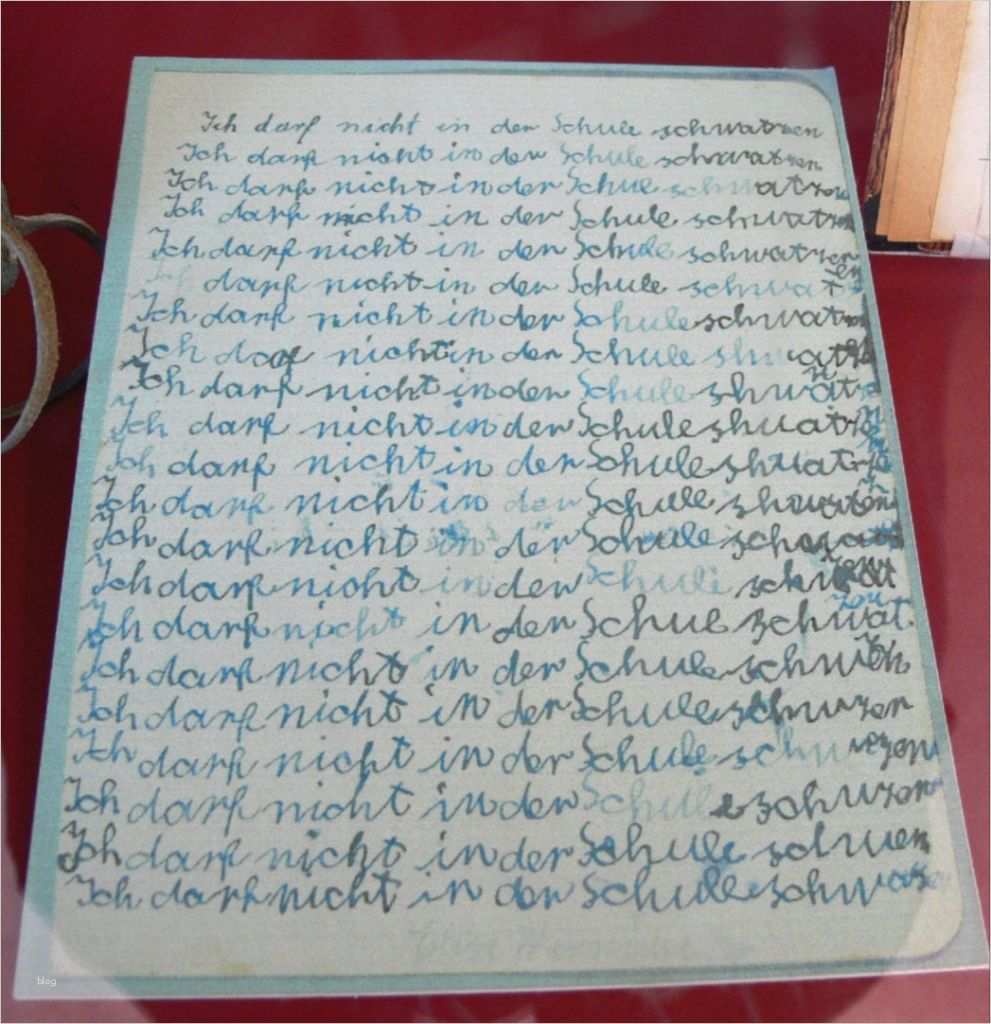 Ich darf nicht in der Schule schwatzen
Ich darf nicht in der Schule schwatzen
Ich darf nicht in der Schule schwatzen
Ich darf nicht in der Schule schwatzen
Ich darf nicht in der Schule schwatzen
Ich darf nicht in der Schule schwatzen
Ich darf nicht in der Schule schwatzen
Ich darf nicht in der Schule shwatz
Ich darf nicht in der Schule shwatz
Ich darf nicht in der Schule shuatz
Ich darf nicht in der Schule shuatz
Ich darf nicht in der Schule
Ich darf nicht in der Schule
Ich darf nicht in der Schule schwat
zen
Ich darf nicht in der Schule schwat.
Ich darf nicht in der Schule
Ich darf nicht in der Schule schwzen
Ich darf nicht in der Schule
Ich darf nicht in der Schule schwzen
Ich darf nicht in der Schule
Ich darf nicht in der Schule
blog